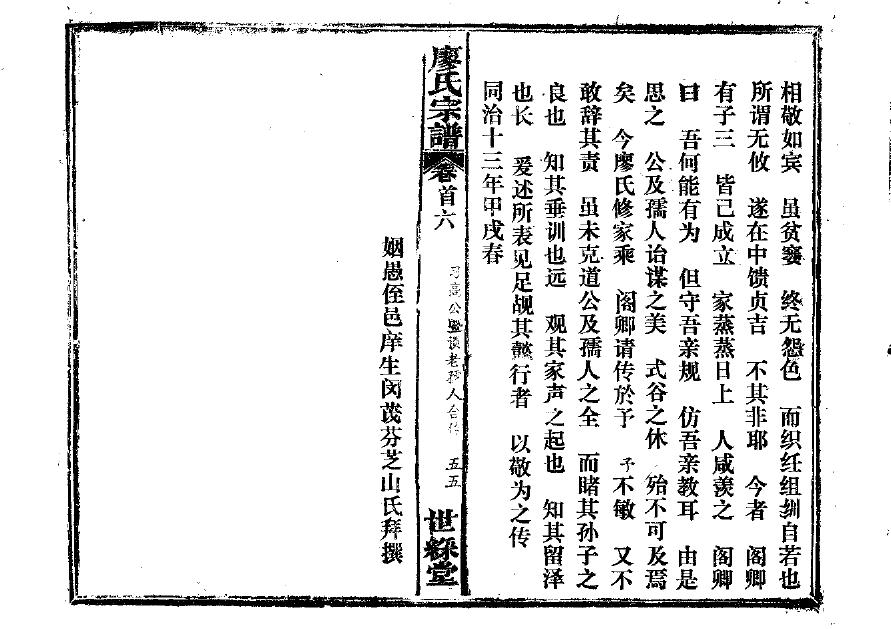 相敬如宾 虽贫窭 终无怨色 而织纴组紃自若也
所谓无攸 遂在中馈贞吉 不其非耶 今者 阁卿
有子三 皆已成立 家蒸蒸日上 人咸羡之 阁卿
曰 吾何能有为 但守吾亲规 仿吾亲教耳 由是
思之 公及孺人诒谋之美 式谷之休 殆不可及焉
矣 今廖氏修家乘 阁卿请传於予 予不敏 又不
敢辞其责 虽未克道公及孺人之全 而睹其孙子之
良也 知其垂训也远 观其家声之起也 知其留泽
也长 爰述所表见足觇其懿行者 以敬为之传
同治十三年甲戌春
廖氏宗譜
卷首六
公暨 老孺人合传 五五
世綵堂
姻愚侄邑庠生闵茂芬芝山氏拜撰